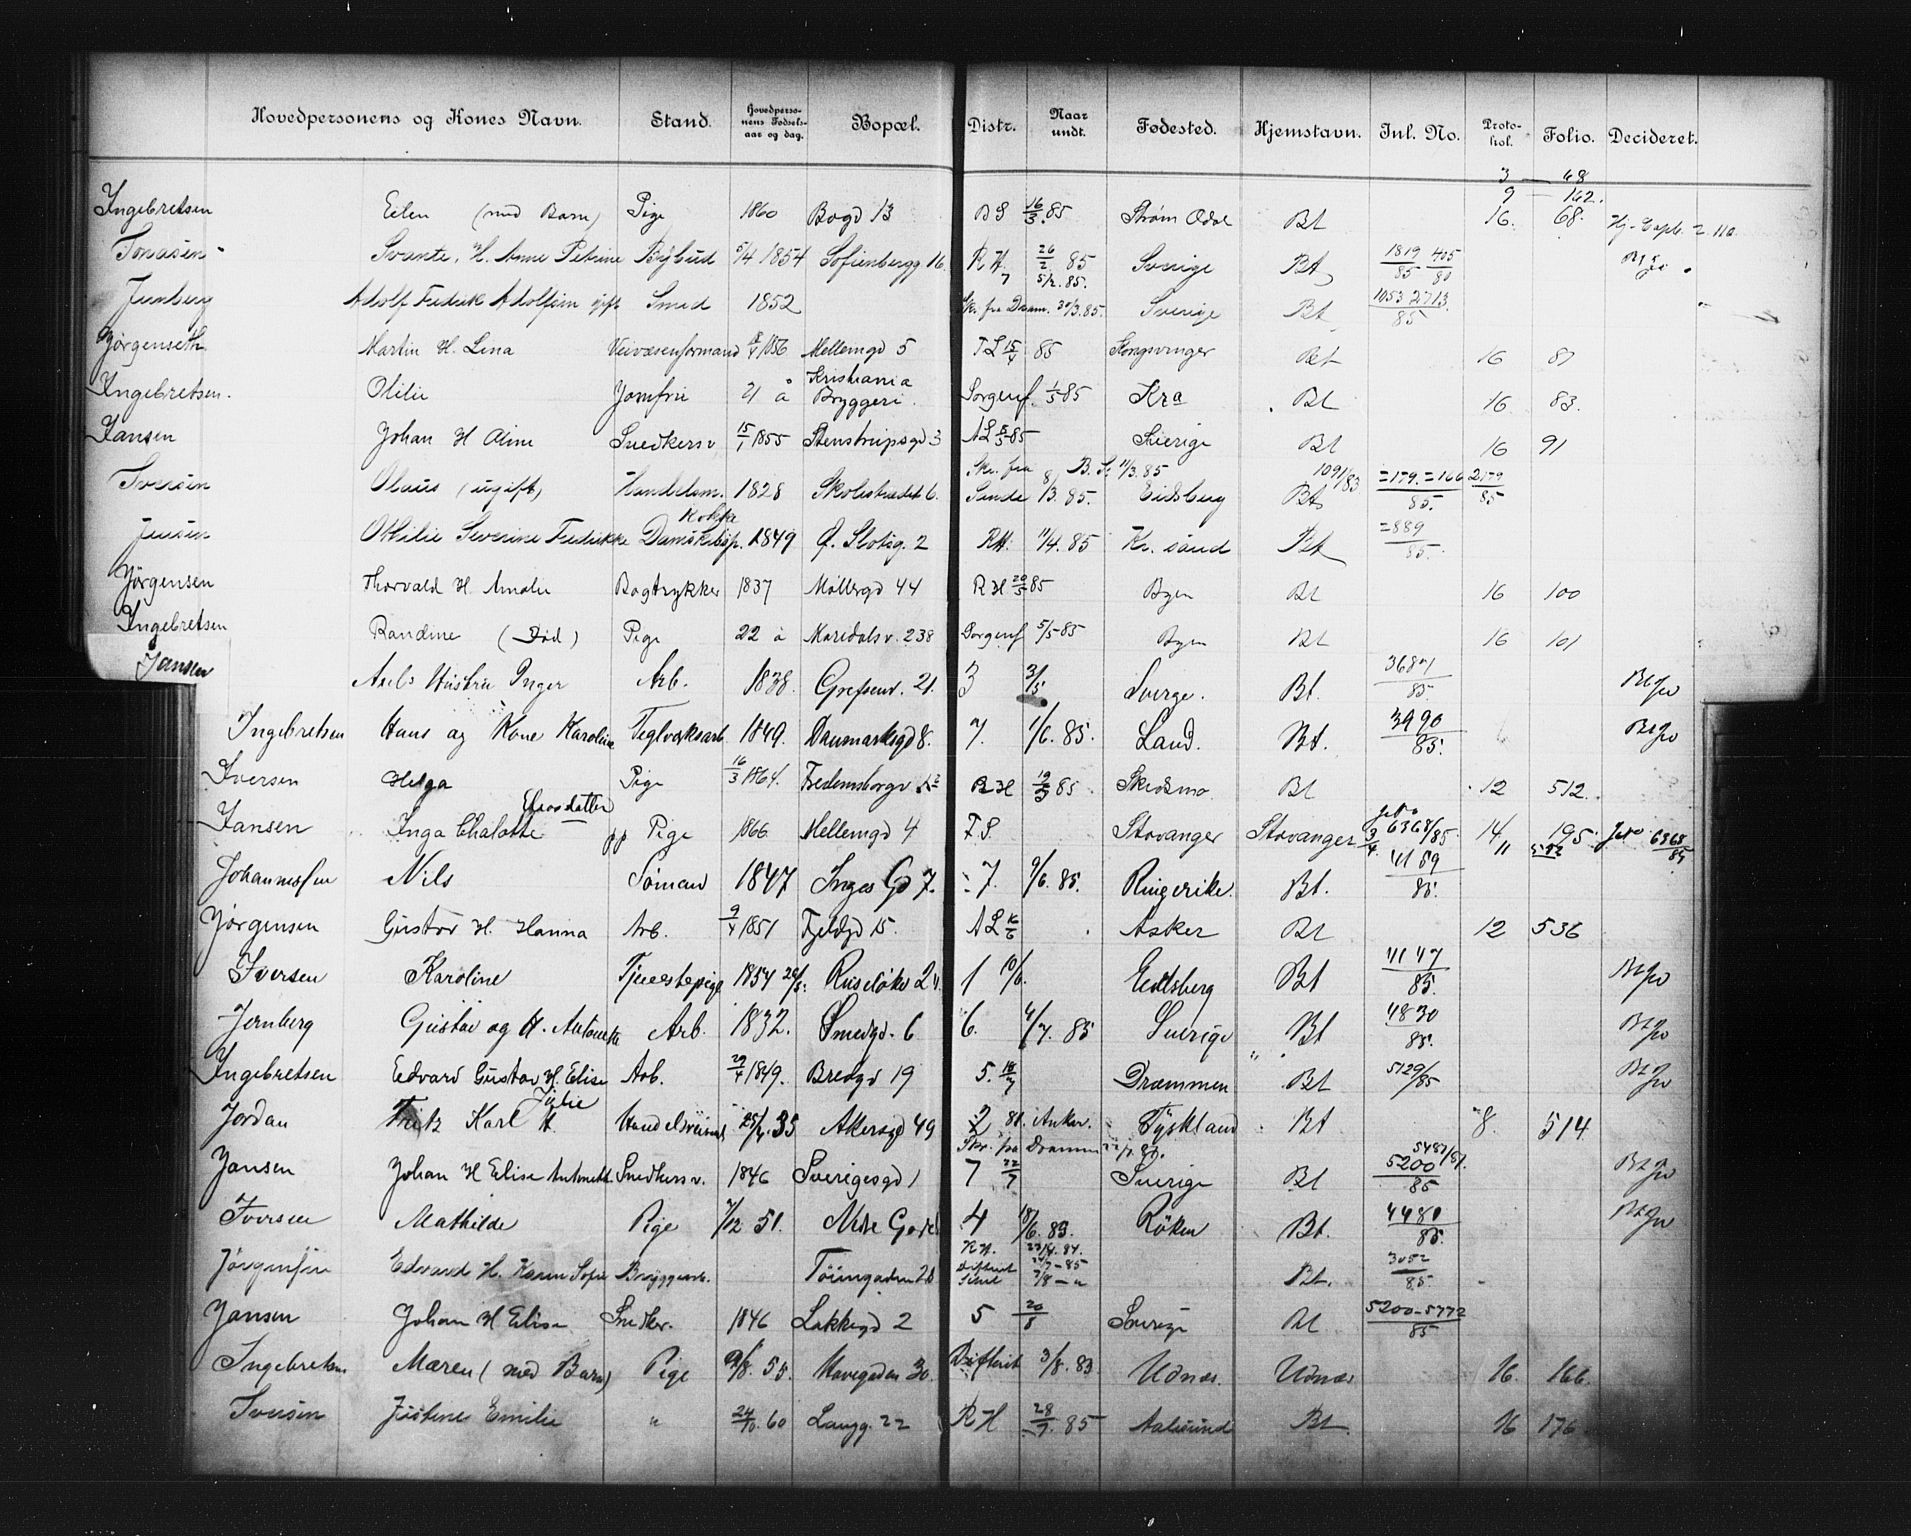 Hovedpersonens og Kones Navn. Stand. Hovedperso- nens Fødsels- aar og dag. Bopæl. Distr. Naar undt. Fødested. Hjemstavn. Inl. No. Proto- kol. Folio. Decideret.
3 — 68
9 — 162.
Ingebretsen Elen (med Barn) Pige 1860 Bogd 13 BS 16/3.85 Strøm Odal Bt 16. 68.
Jonasen Svante, H. Anne Petrine Bybud 5/4 1854 Sofienbergg 16. RH. 26/2 85 Sverige Bt 1819/85 405/80
7 5/2.85.
Jernberg Adolf Fredrik Adolfsen gift Smed 1852 Skr. fra Dram. 30/3.85. Sverige Bt 1053 2713/85
Jørgenseth Martin H. Lina Veivæsenformand 8/4 1856 Mellemgd 5 TL 15/4 85 Kongsvinger Bt 16 81
Ingebretsen. Otilie Jomfru 21 å Kristiania Bryggeri. Sorgenf. 1/5 85 Kra Bt 16 83.
Jansen Johan H Oline Snedkersv. 15/1 1855 Stenstrupsgd 3 AL 5/5 85 Sverige Bt 16 91
Skr. fra B.S. 11/3.85
Iversen Olaus (ugift) Handelsm. 1828 Skolestrædet 6. 8/3.85. Eidsberg Bt 1091/83 =179.=166 2179/85 85
Jensen Othilie Severine Fredrikke Kokke Damskibsp. 1849 Ø. Slotsg. 2 RH. 11/4.85 Kr. sand Bt =889/85.
Jørgensen Thorvald H Amalie Bogtrykker 1837 Møllergd 44 RH 20/5 85 Byen Bt 16 100
Ingebretsen Randine (Død) Pige 22 å Maridalsv. 238 Sorgenf 5/5 85 Byen Bt 16 101
Jansen Axels Hustru Inger Arb. 1838. Grefsenv. 21. 3 3/5 Sverge. Bt. 3687/85
Ingebretsen Hans og Kone Karoline Teglværksarb 1849. Danmarksgd 8. 7. 1/6.85. Land. Bt. 3990/85.
Iversen Helga Pige 16/3 1864. Fredensborgv RH 19/3 85 Skedsmo. Bt 12 512.
Jansen Inga Chalotte Aasdatter Pige 1866 Mellemgd 4 F.S. Stavanger Stavanger 3/4. 6368/85. 14 195. 6368/85
11 572
Johannessen Nils Sømand 1847 Inges Gd 7. 7. 9/6.85. Ringerike. Bt. 4159/85.
Jørgensen Gustav H. Hanna Arb. 9/4 1851 Fjeldgd 15. AL 16/6 Asker Bt 12 536
Iversen Karoline Tjenestepige 1854 Ruseløkv 1 10/6. Eidsberg Bt 4147/85.
Jernberg Gustav og H. Antonette Arb. 1832. Smedgd. 6 6. 4/7.85 Sverige Bt 4830/85.
Ingebretsen Edvard Gustav H. Elise Arb. 29/4 1849. Bredgd 19 5. 18/7 Drammen Bt 5129/85
Jordan Fritz Karl H Julie 25/4.35 Akersgd 49 2 Anker. Tyskland Bt 8. 514.
Skr. fra Drammen
Jansen Johan H Elise Antonette Snedkersv. 1846 Sverigesgd 1 7 22/7 Sverige Bt 5200/85
Iversen Mathilde Pige 7/12 51. 4 18/6.85. Røken Bt. 4480/85.
RH. 23/4.84.
Jørgensen Edvard H. Karen Sofie Bryggearb. Tøiengaden Difterit 24/7-85 Bt. 3052/85.
Jansen Johan H Elise Snedker. 1846 Lakkegd 2 5 20/8 Sverige Bt 5200-5772/85
Ingebretsen Maren (med Barn) Pige 9/8.55. Havegaden 30. Difterit 3/8.83. Udnæs. Udnæs 16. 166.
Iversen Justine Emilie " 24/10.60 Langg. 22 RH 28/7.85 Aalesund Bt 16 176